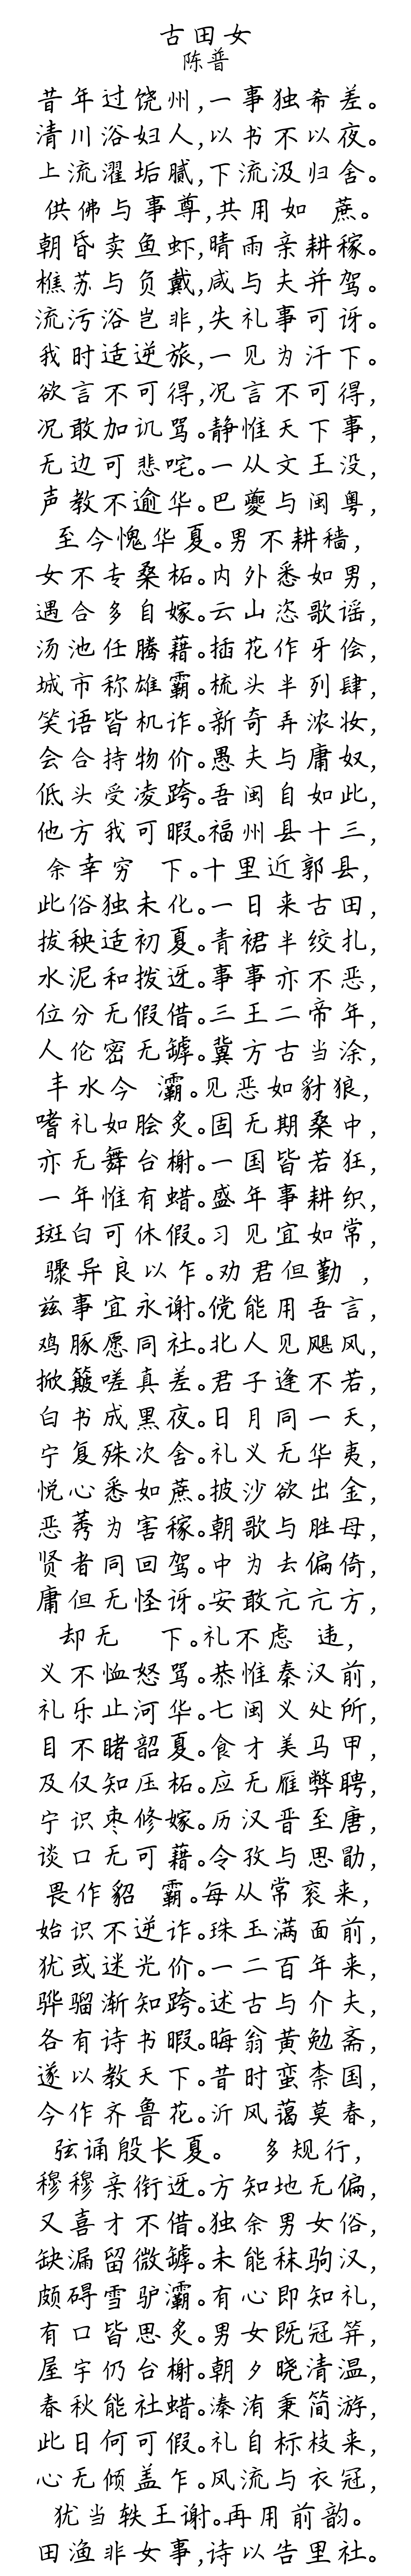 古田女
陈普
昔年过饶州,一事独希差。
清川浴妇人,以书不以夜。
上流濯垢腻,下流汲归舍。
供佛与事尊,共用如 蔗。
朝昏卖鱼虾,晴雨亲耕稼。
樵苏与负戴,咸与夫并驾。
流污浴岂非,失礼事可讶。
我时适逆旅,一见为汗下。
欲言不可得,况言不可得,
况敢加讥骂。静惟天下事,
无边可悲咤。一从文王没,
声教不逾华。巴夔与闽粤,
至今愧华夏。男不耕穑,
女不专桑柘。内外悉如男,
遇合多自嫁。云山恣歌谣,
汤池任腾藉。插花作牙侩,
城市称雄霸。梳头半列肆,
笑语皆机诈。新奇弄浓妆,
会合持物价。愚夫与庸奴,
低头受凌跨。吾闽自如此,
他方我可暇。福州县十三,
余幸穷 下。十里近郭县,
此俗独未化。一日来古田,
拔秧适初夏。青裙半绞扎,
水泥和拨迓。事事亦不恶,
位分无假借。三王二帝年,
人伦密无罅。冀方古当涂,
丰水今 灞。见恶如豺狼,
嗜礼如脍炙。固无期桑中,
亦无舞台榭。一国皆若狂,
一年惟有蜡。盛年事耕织,
斑白可休假。习见宜如常,
骤异良以乍。劝君但勤 ,
兹事宜永谢。傥能用吾言,
鸡豚愿同社。北人见飓风,
掀簸嗟真差。君子逢不若,
白书成黑夜。日月同一天,
宁复殊次舍。礼义无华夷,
悦心悉如蔗。披沙欲出金,
恶莠为害稼。朝歌与胜母,
贤者同回驾。中为去偏倚,
庸但无怪讶。安敢亢亢方,
却无 下。礼不虑 违,
义不恤怒骂。恭惟秦汉前,
礼乐止河华。七闽义处所,
目不睹韶夏。食才美马甲,
及仅知压柘。应无雁弊聘,
宁识枣修嫁。历汉晋至唐,
谈口无可藉。令孜与思勖,
畏作貂 霸。每从常衮来,
始识不逆诈。珠玉满面前,
犹或迷光价。一二百年来,
骅骝渐知跨。述古与介夫,
各有诗书暇。晦翁黄勉斋,
遂以教天下。昔时蛮柰国,
今作齐鲁花。沂风蔼莫春,
弦诵殷长夏。 多规行,
穆穆亲衔迓。方知地无偏,
又喜才不借。独余男女俗,
缺漏留微罅。未能秣驹汉,
颇碍雪驴灞。有心即知礼,
有口皆思炙。男女既冠笄,
屋宇仍台榭。朝夕晓清温,
春秋能社蜡。溱洧秉简游,
此日何可假。礼自标枝来,
心无倾盖乍。风流与衣冠,
犹当轶王谢。再用前韵。
田渔非女事,诗以告里社。